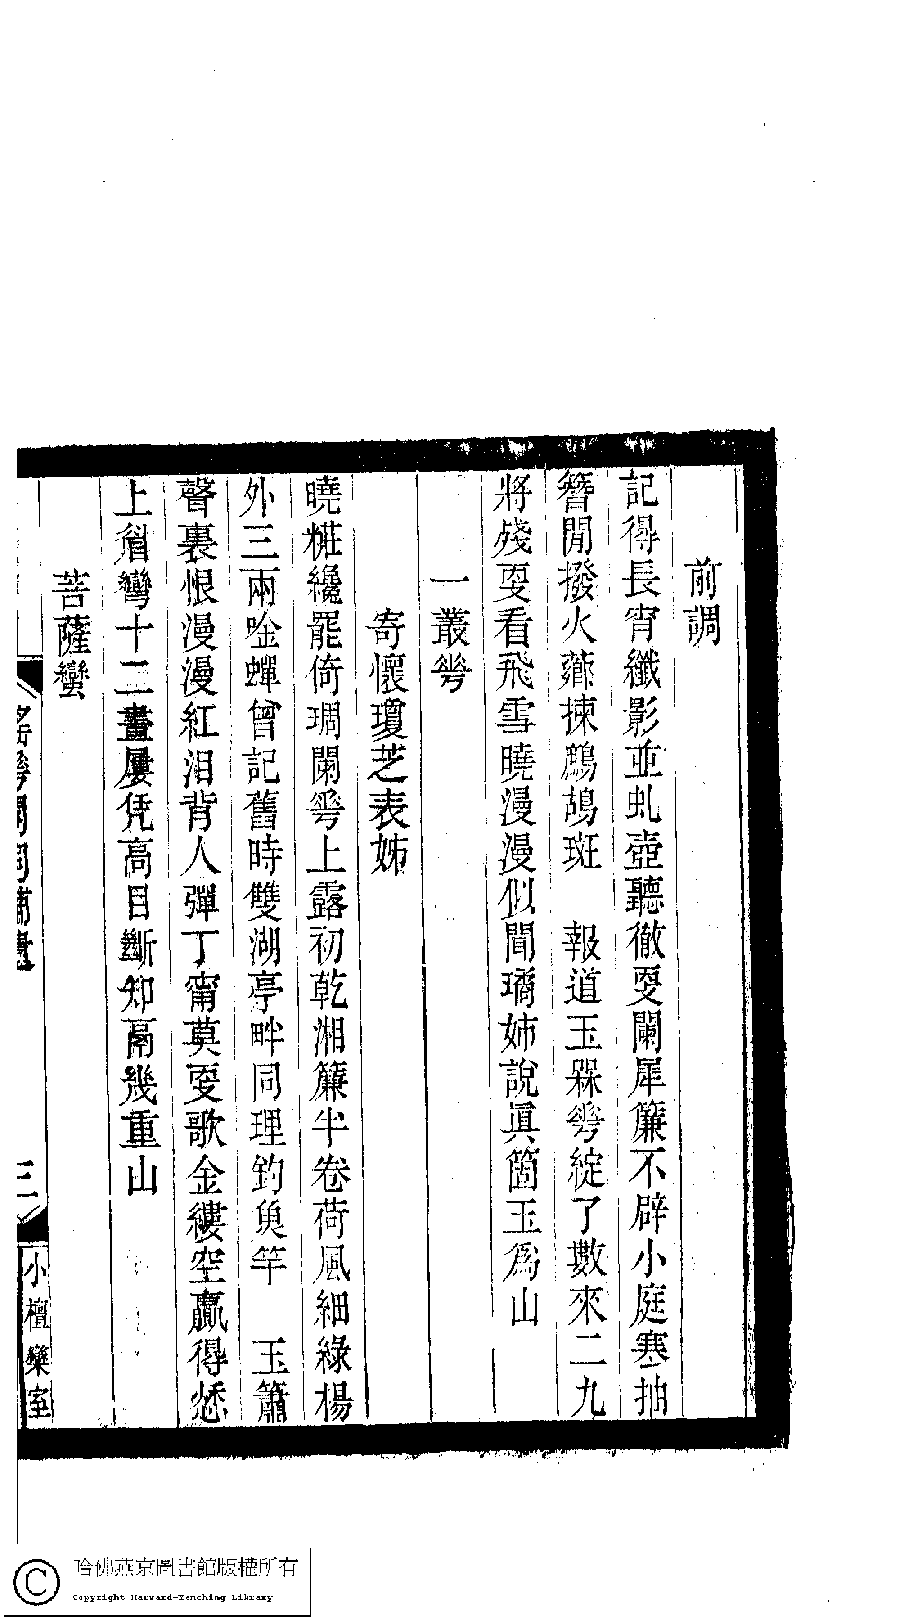 前調
記得長宵纖影並虬壺聽徹㪅闌犀簾不辟小庭寒抽
簪閒撥火薌揀鷓鴣斑　報道玉槑𠌶綻了數來二九
將殘㪅看飛雪曉漫漫似聞璚姊說眞箇玉爲山
一叢𠌶
寄懷瓊芝表姊
曉糚纔罷倚琱闌𠌶上露初乾湘簾半卷荷風細綠楊
外三兩唫蟬曾記舊時雙湖亭畔同理釣魚竿　玉簫
聲裏恨漫漫紅泪背人彈丁甯莫㪅歌金縷空贏得愁
上眉彎十二畫屛凭高目斷知鬲幾重山
菩薩蠻
瑤𠌶閣詞補遺
三
小檀欒室
哈佛燕京圖書館版權所有
Copyright Harvard-Yenching Library